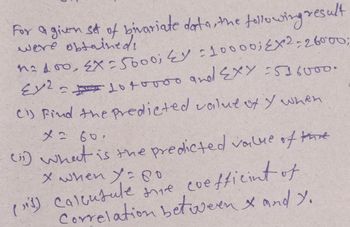 For a given set of bivariate data, the following result
were obtained:
n = 100, ΣX = 5000; ΣY = 10000; ΣX² = 26000;
ΣY² = 1040000 and ΣXY = 516000.
(i) Find the predicted value of Y when
X = 60.
(ii) what is the predicted value of
X when Y = 80
(iii) calculate the coefficint of
Correlation between X and Y.